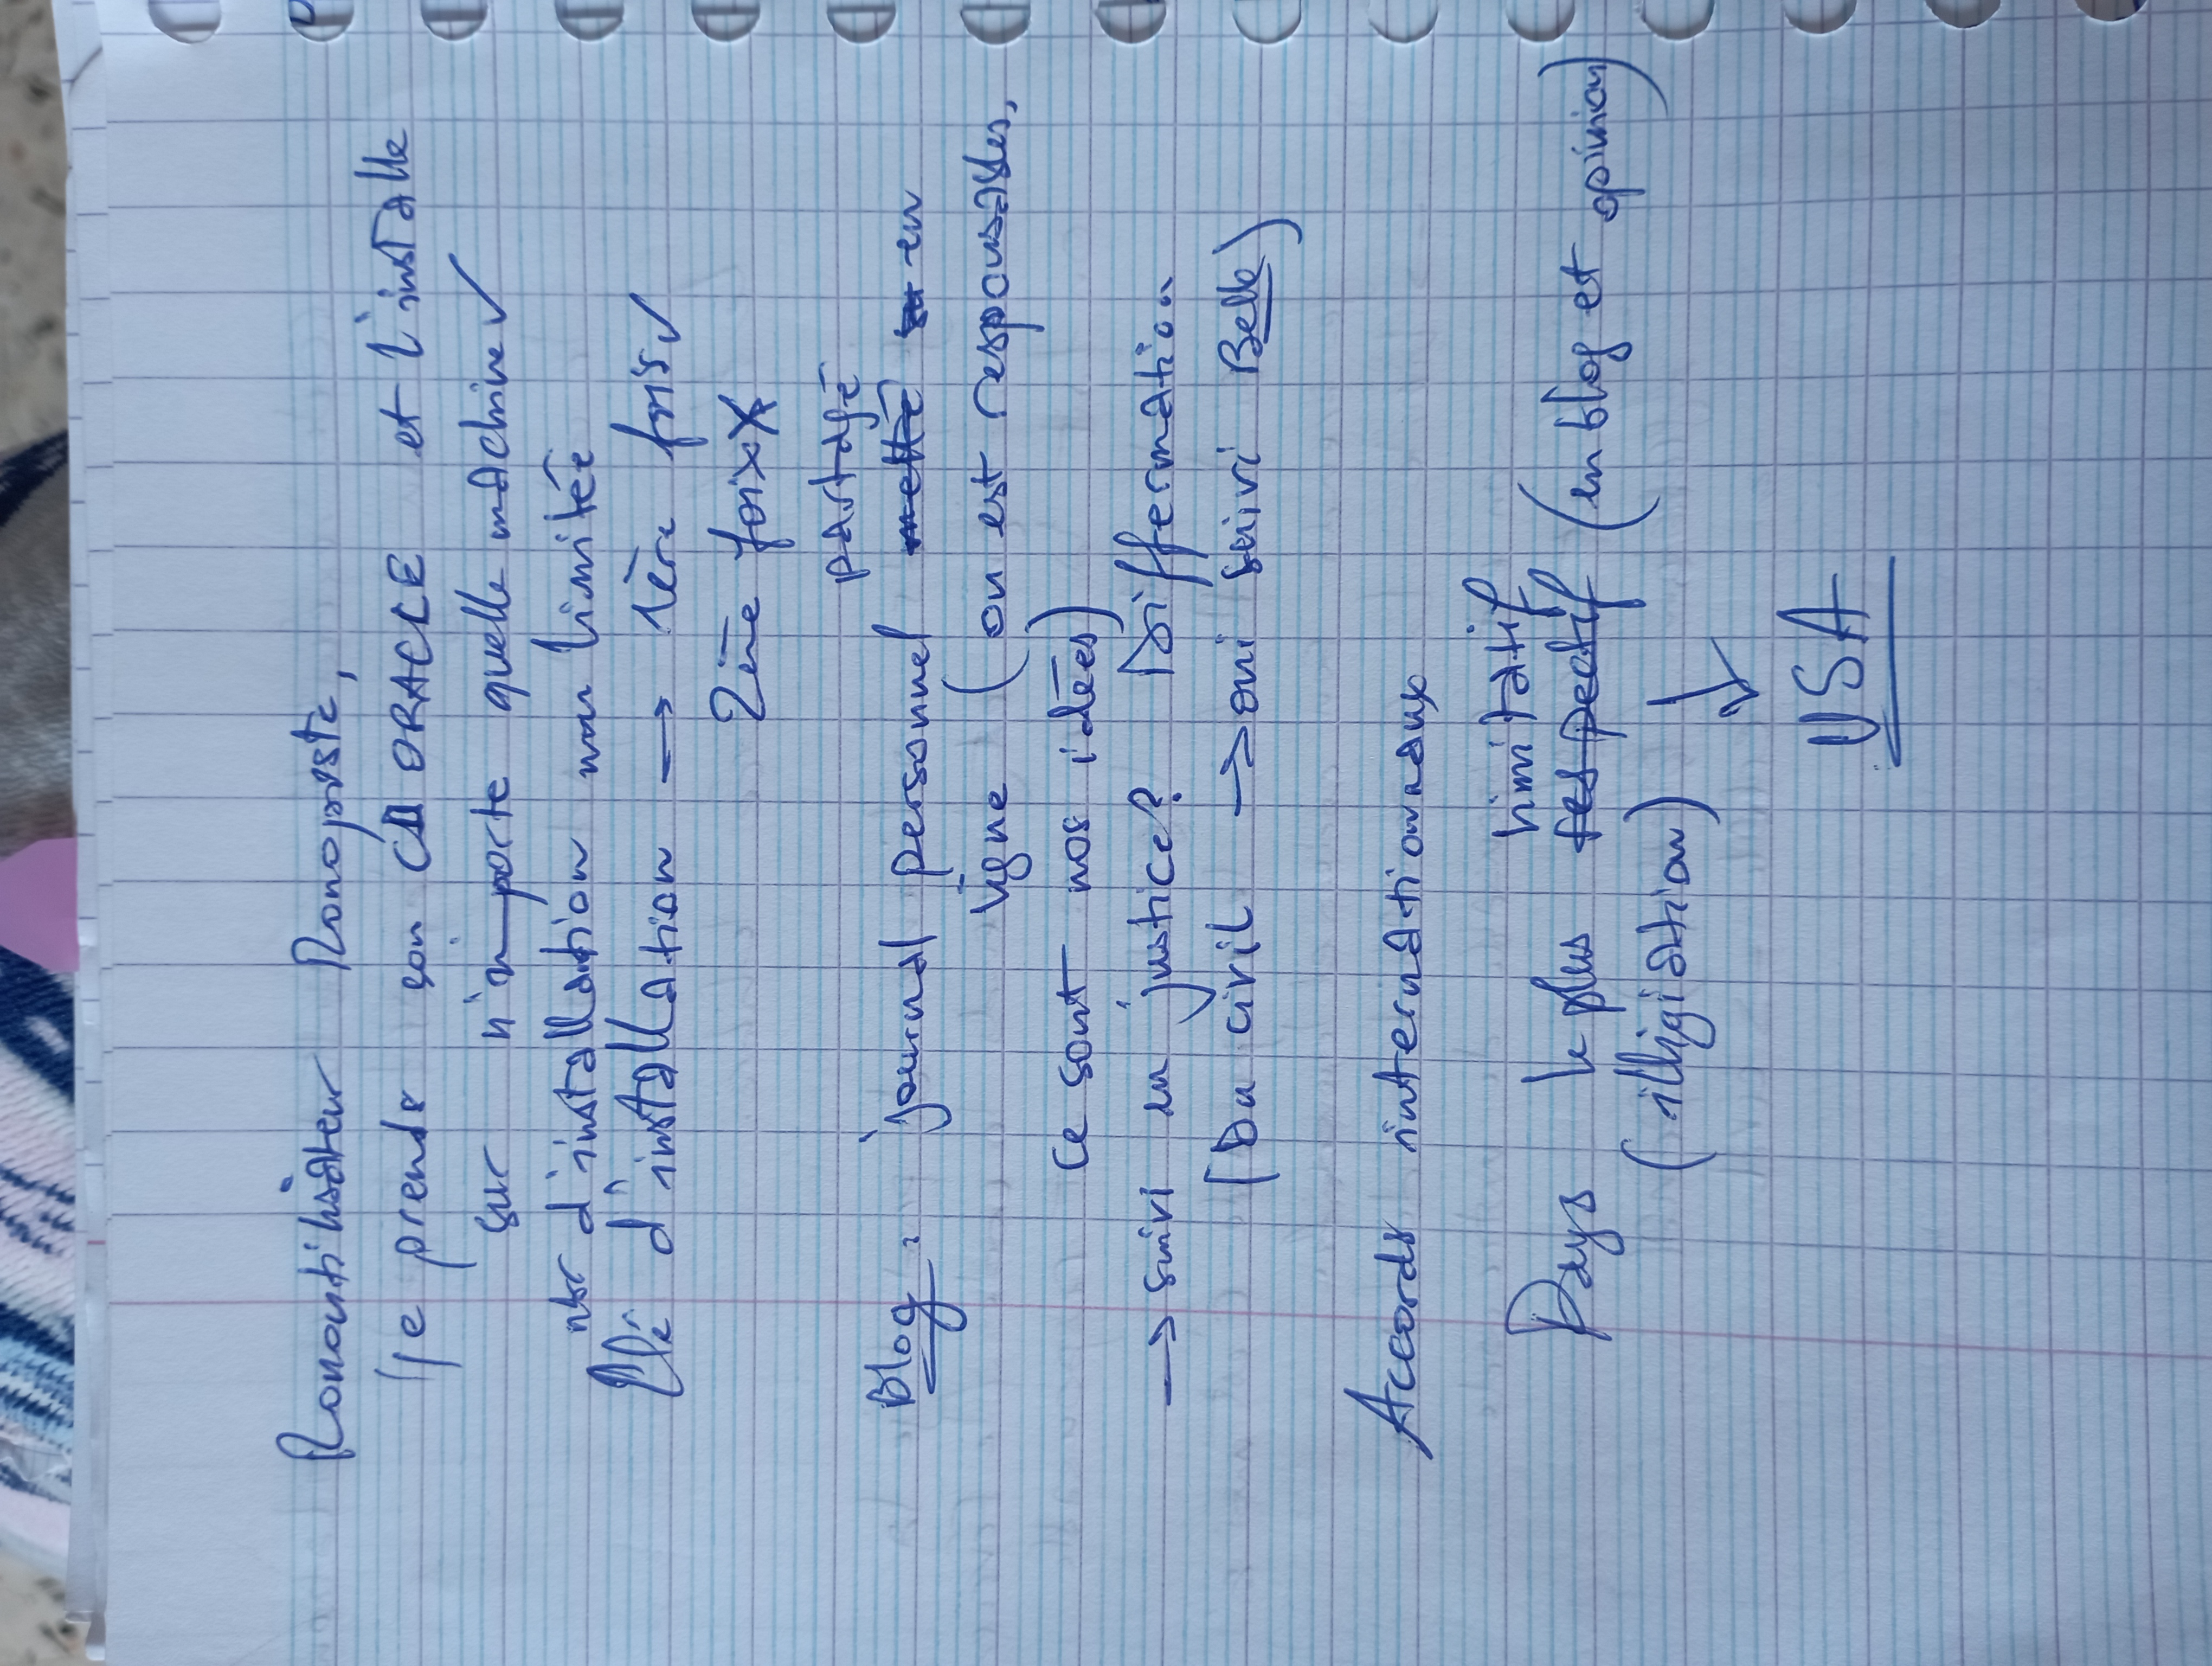 Monoutilisateur Monoposte,
Je prends son CD ORACLE et l'installe
sur n'importe quelle machine ✓
nbr d'installation non limitée
Clé d'installation → 1ère fois ✓
2ème foix X
partagé
Blog : journal personnel en
ligne (on est responsables,
ce sont nos idées)
→ suivi en justice? Differmation
(Du civil → oui suivi Belle)
Accords internationnaux
limitatif
Pays le plus respectif (en blog et opinion)
(illigiation) ↓
USA